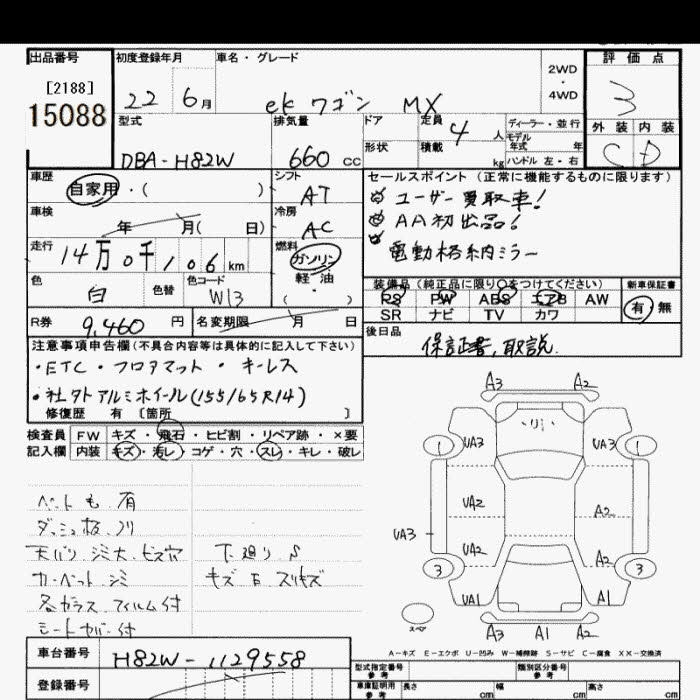 出品番号
[2188]
15088
初度登録年月
22 6月
車名・グレード
ekワゴン MX
2WD
・
4WD
評価点
3
外装 内装
C D
型式
DBA-H82W
排気量
660 cc
ドア
形状
定員
4人
積載
kg
ディーラー・並行
モデル
年式 年
ハンドル 左・右
車歴
自家用・( )
シフト
AT
車検
年 月( 日)
冷房
AC
走行
14万0千106km
燃料
ガソリン
軽・油
( )
色
白
色替
色コード
W13
R券
9,460円
名変期限 月 日
セールスポイント(正常に機能するものに限ります)
ユーザー買取車!
AA初出品!
電動格納ミラー
装備品(純正品に限り○をつけてください)
PS PW ABS エアB AW
SR ナビ TV カワ
新車保証書
有・無
後日品
保証書,取説.
注意事項申告欄(不具合内容等は具体的に記入して下さい)
・ETC・フロアマット・キーレス
・社外アルミホイール(155/65R14)
修復歴 有 [箇所 ]
検査員
記入欄
FW キズ・飛石・ヒビ割・リペア跡・×要
内装 キズ・汚レ・コゲ・穴・スレ・キレ・破レ
ペットも有
ダッシュ板ノリ
天バリ シミ大 ビス穴
カーペット シミ
各ガラス フィルム付
シートカバー付
下廻りS
キズ スリキズ
A3 A2
1 UA3 UA3 1
UA2 A2
UA3
UA2 A2
3 3
UA1 A1
スペア
A3 A1 A2
A-キズ E-エクボ U-凹み W-補修跡 S-サビ C-腐食 XX-交換済
車台番号
H82W-1129558
登録番号
型式指定番号
参考
類別区分番号
参考
車庫証明用
参考
長さ cm
幅 cm
高さ cm